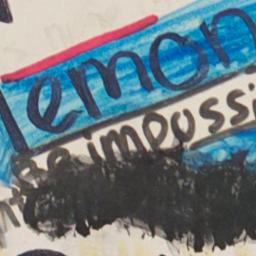 lemon
Be impossi